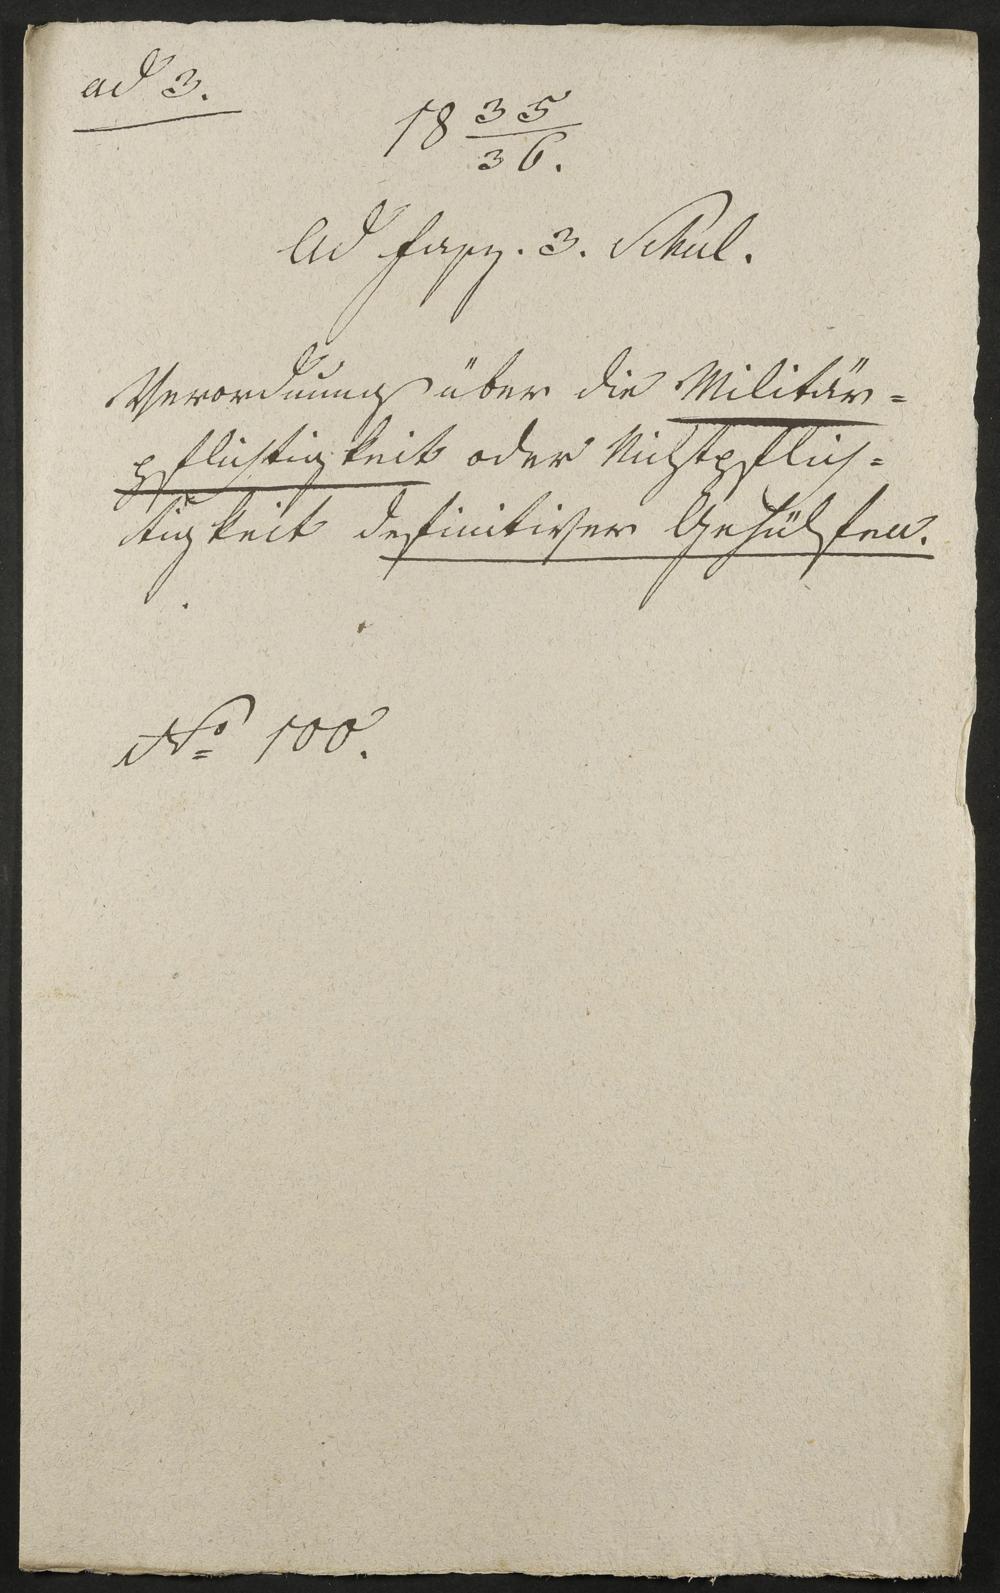 ad 3.
18 35/36.
Ad Fasz. 3. Schul.
Verordnung über die Militär=
pflichtigkeit oder Nichtpflich=
tigkeit definitiver Gehülfen.
No 100.